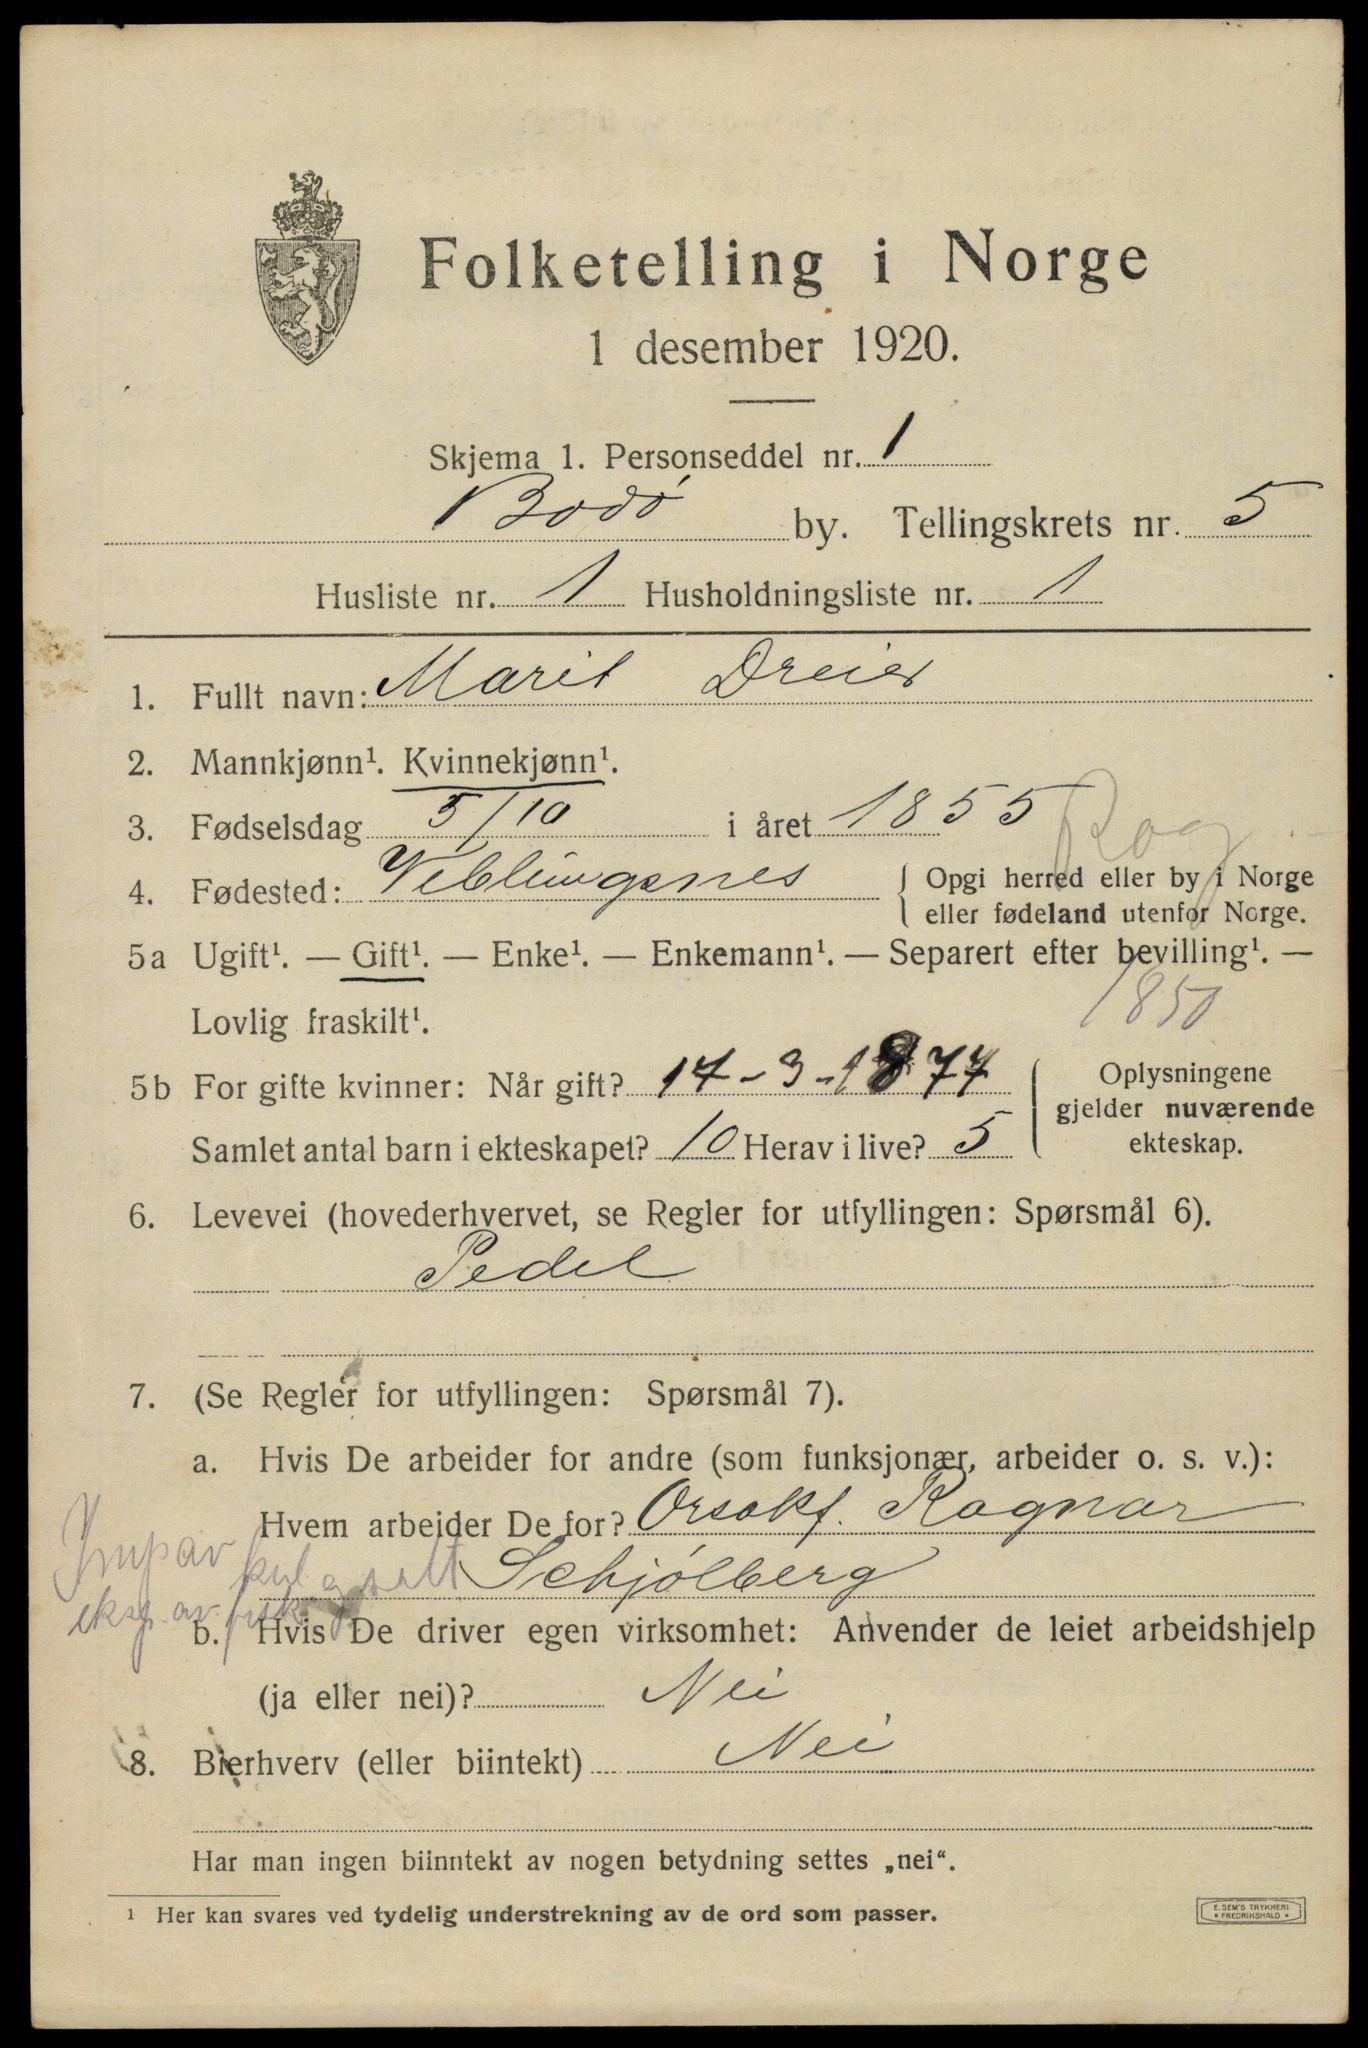 Folketelling i Norge
1 desember 1920.
Skjema 1. Personseddel nr. 1
Bodø by. Tellingskrets nr. 5
Husliste nr. 1 Husholdningsliste nr. 1
1. Fullt navn: Marit Dreier
2. Mannkjønn¹. Kvinnekjønn¹.
3. Fødselsdag 5/10 i året 1855
4. Fødested: Veblungsnes { Opgi herred eller by i Norge
eller fødeland utenfor Norge.
Rog
5a Ugift¹. — Gift¹. — Enke¹. — Enkemann¹. — Separert efter bevilling¹. —
Lovlig fraskilt¹.
1850
5b For gifte kvinner: Når gift? 14-3-1877
Samlet antal barn i ekteskapet? 10 Herav i live? 5
Oplysningene
gjelder nuværende
ekteskap.
6. Levevei (hovederhvervet, se Regler for utfyllingen: Spørsmål 6).
Pedel
7. (Se Regler for utfyllingen: Spørsmål 7).
a. Hvis De arbeider for andre (som funksjonær, arbeider o. s. v.):
Hvem arbeider De for? Orsakf. Ragnar
Schjølberg
Imp av kul og salt
eksp. av fisk
b. Hvis De driver egen virksomhet: Anvender de leiet arbeidshjelp
(ja eller nei)? Nei
8. Bierhverv (eller biintekt) Nei
Har man ingen biinntekt av nogen betydning settes „nei“.
¹ Her kan svares ved tydelig understrekning av de ord som passer.
E. SEM'S TRYKKERI
* FREDRIKSHALD *